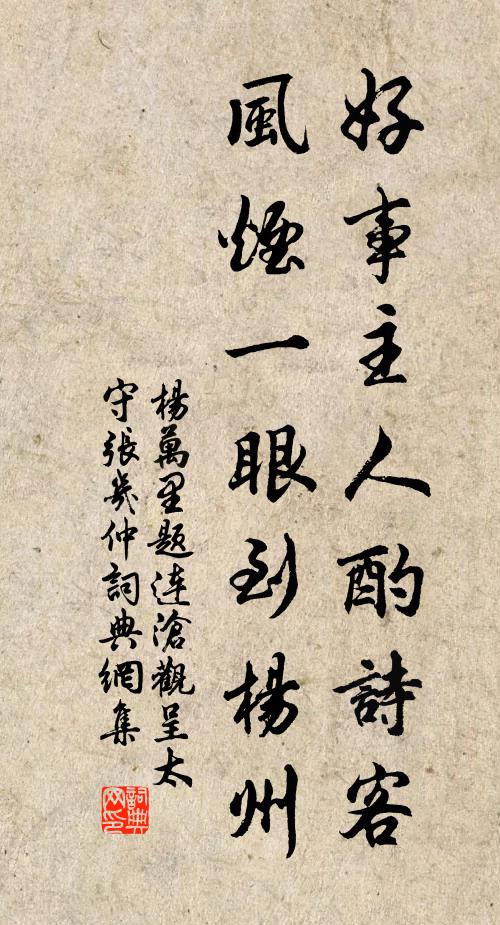 好事主人酌詩客
風煙一眼到楊州
楊萬里題連滄觀呈太
守張幾仲詞典網集
詞典网印